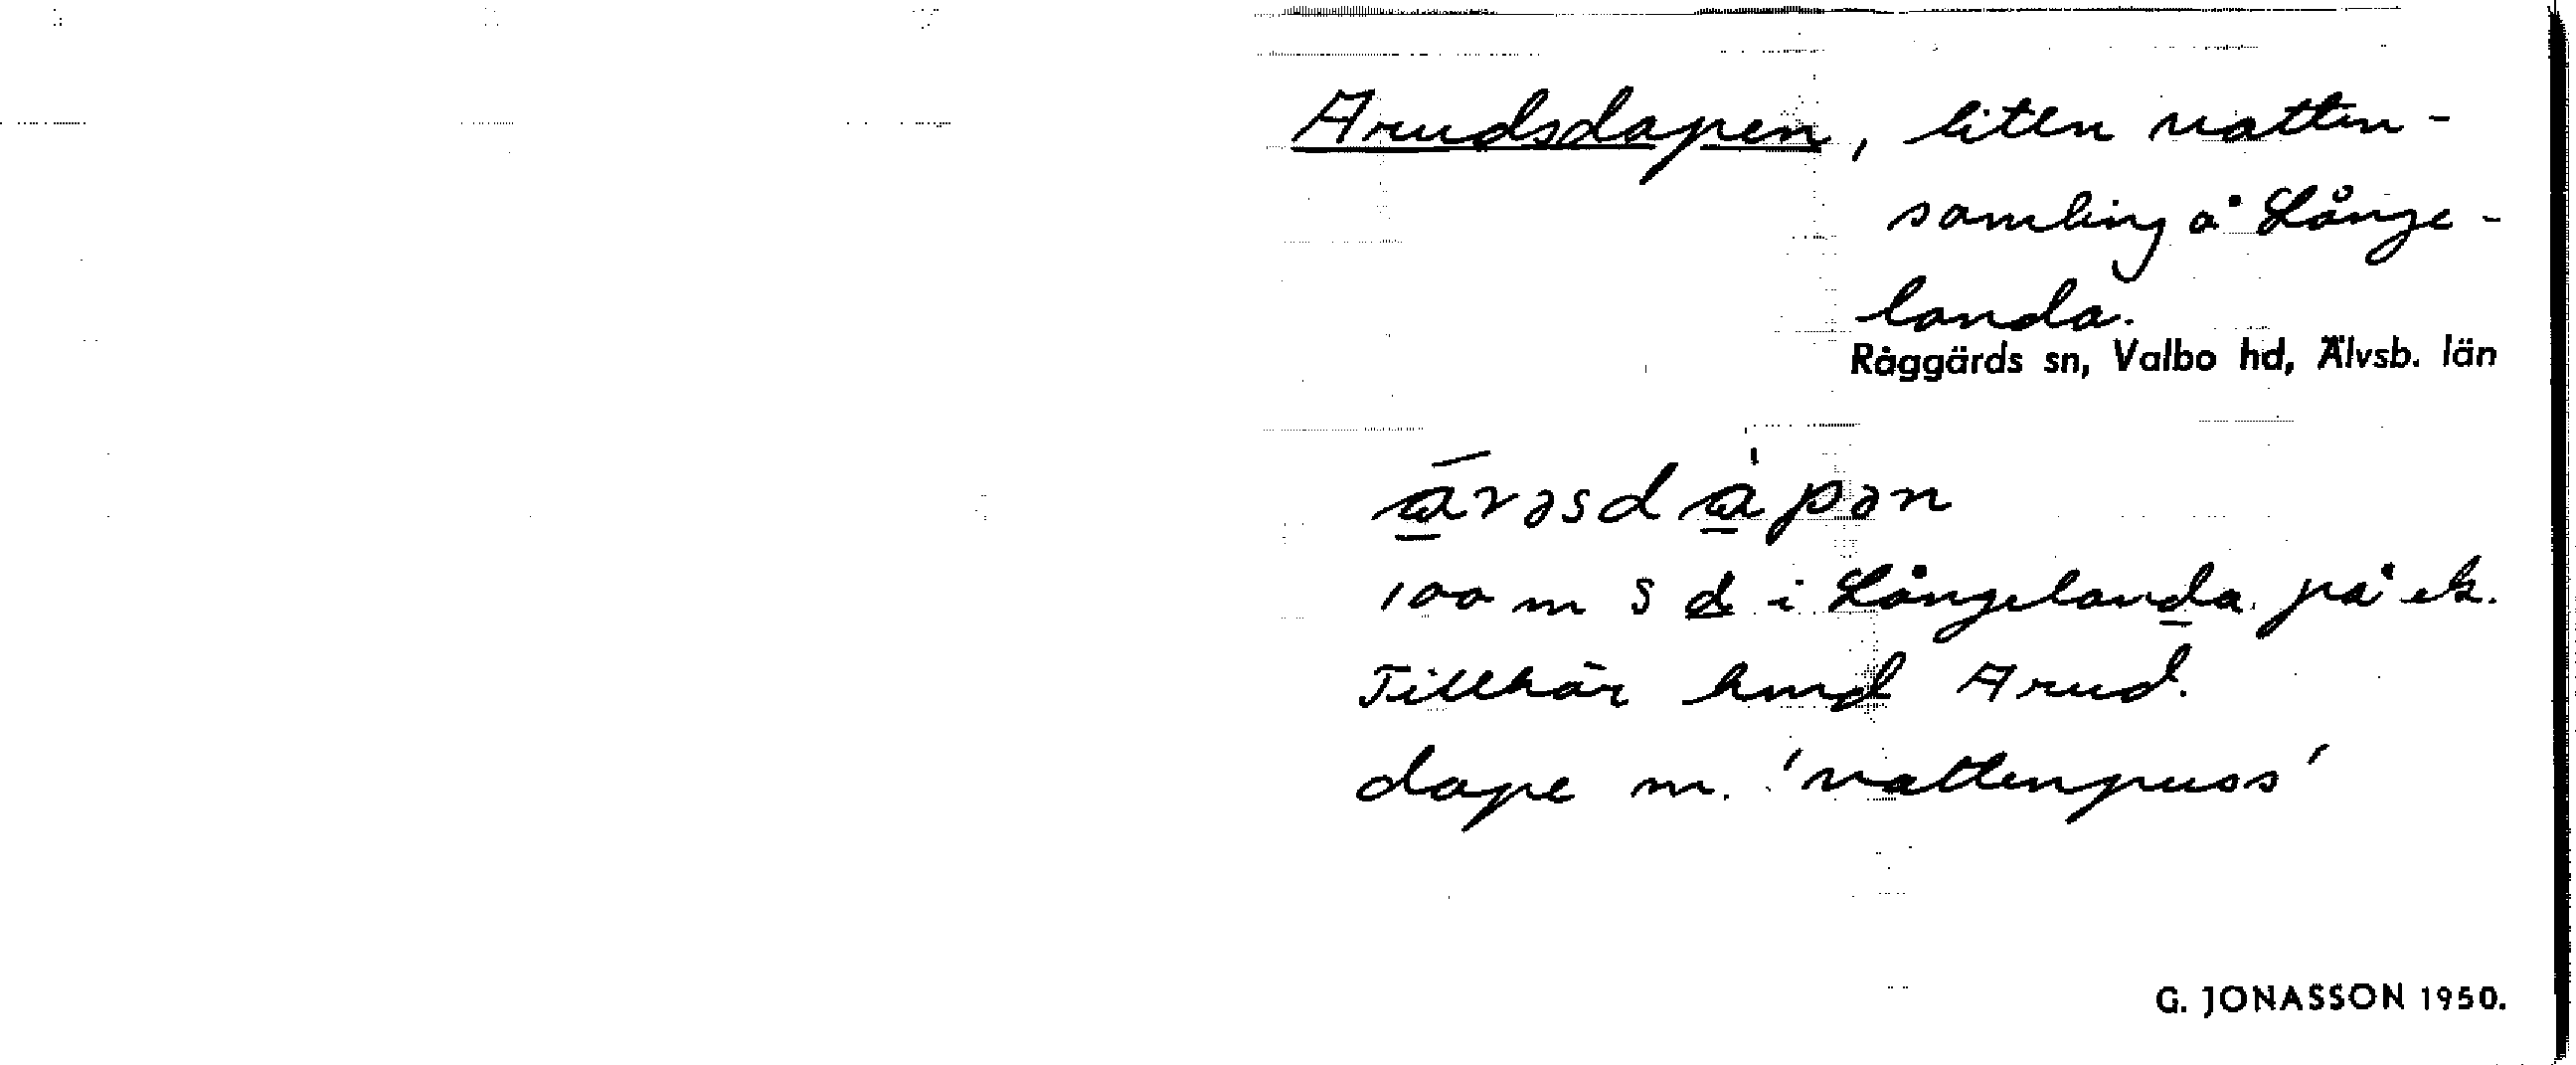 Arudsdapen, liten vatten-
samling å Långe-
landa.
Råggärds sn, Valbo hd, Älvsb. län
ārəsdàpən
100 m S d i Långelanda på ek.
Tillhör hmd Arud.
dape m. 'vattenpuss'
G. JONASSON 1950.